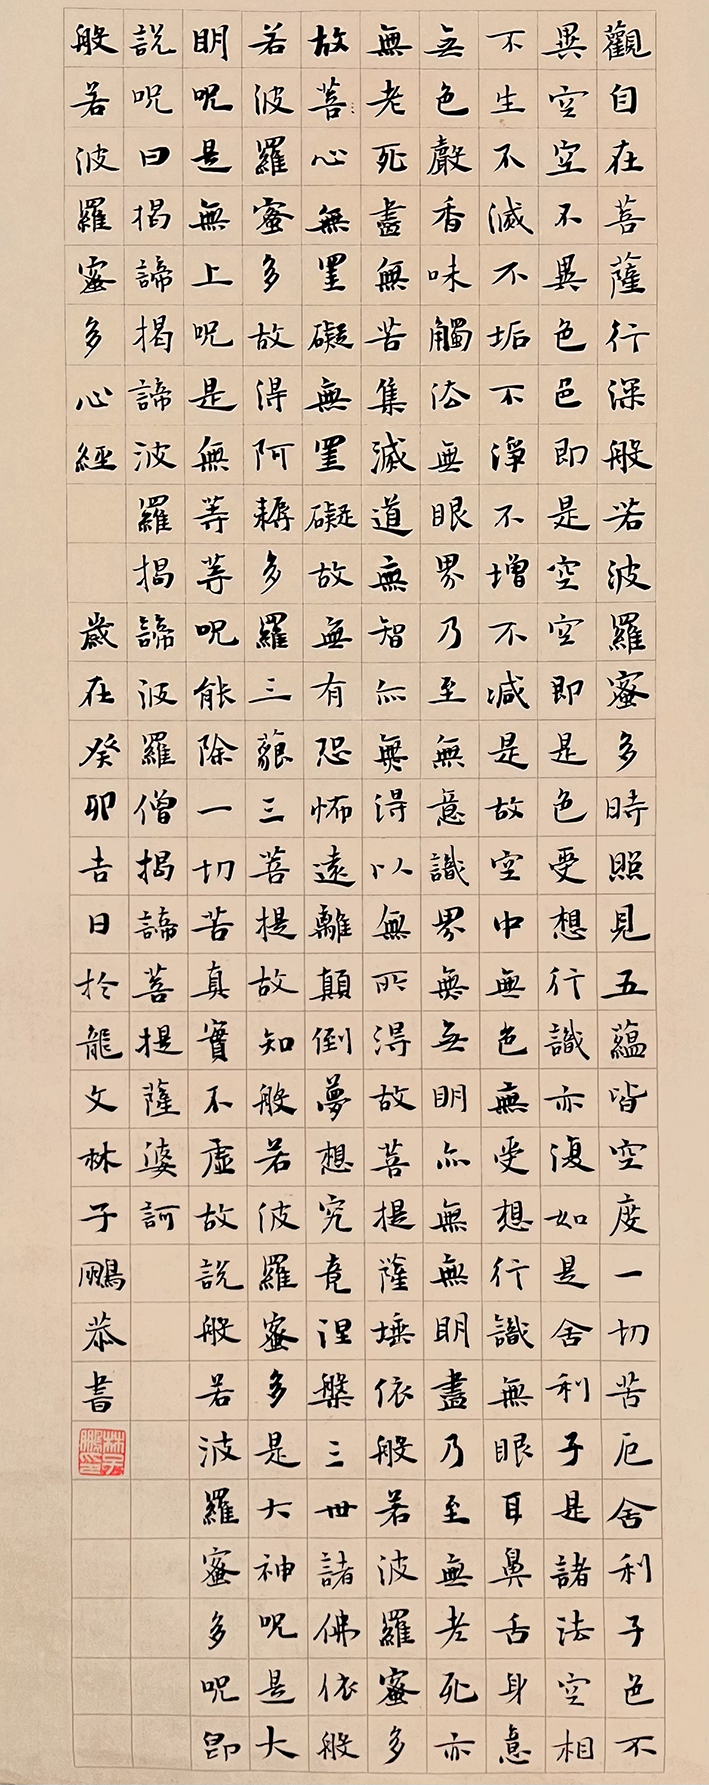 觀自在菩薩行深般若波羅蜜多時照見五蘊皆空度一切苦厄舍利子色不
異空空不異色色即是空空即是色受想行識亦復如是舍利子是諸法空相
不生不滅不垢不淨不增不減是故空中無色無受想行識無眼耳鼻舌身意
无色聲香味觸法無眼界乃至無意識界無无明亦無無明盡乃至無老死亦
無老死盡無苦集滅道無智亦無得以無所得故菩提薩埵依般若波羅蜜多
故菩心無罣礙無罣礙故無有恐怖遠離顛倒夢想究竟涅槃三世諸佛依般
若波羅蜜多故得阿耨多羅三藐三菩提故知般若波羅蜜多是大神呪是大
明呪是無上呪是無等等呪能除一切苦真實不虛故說般若波羅蜜多呪即
說呪曰揭諦揭諦波羅揭諦波羅僧揭諦菩提薩婆訶
般若波羅蜜多心經 歲在癸卯吉日於龍文林子鵬恭書
林子鵬印